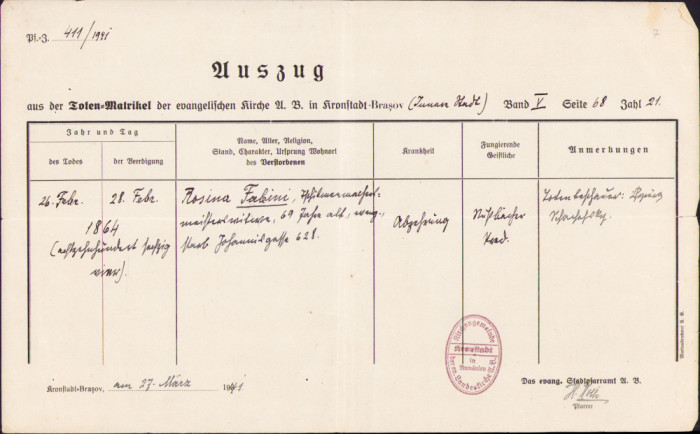 Pf.-Z. 411/1941
7
Auszug
aus der Toten-Matrikel der evangelischen Kirche A. B. in Kronstadt-Brașov (Innere Stadt) Band V Seite 68 Zahl 21.
Jahr und Tag
des Todes
der Beerdigung
Name, Alter, Religion,
Stand, Charakter, Ursprung Wohnort
des Verstorbenen
Krankheit
Fungierende
Geistliche
Anmerkungen
26. Febr.
28. Febr.
1864
(achtzehnhundert sechzig
vier).
Rosina Fabini,
meisterswitwe, 69 Jahre alt, evang.,
starb Johannisgasse 628.
Abzehrung
Nußbächer
Pred.
Totenbeschauer:
Kirchengemeinde
Kronstadt
in
Rumänien
Kronstadt-Brașov, am 27. März 1941
Das evang. Stadtpfarramt A. B.
Pfarrer